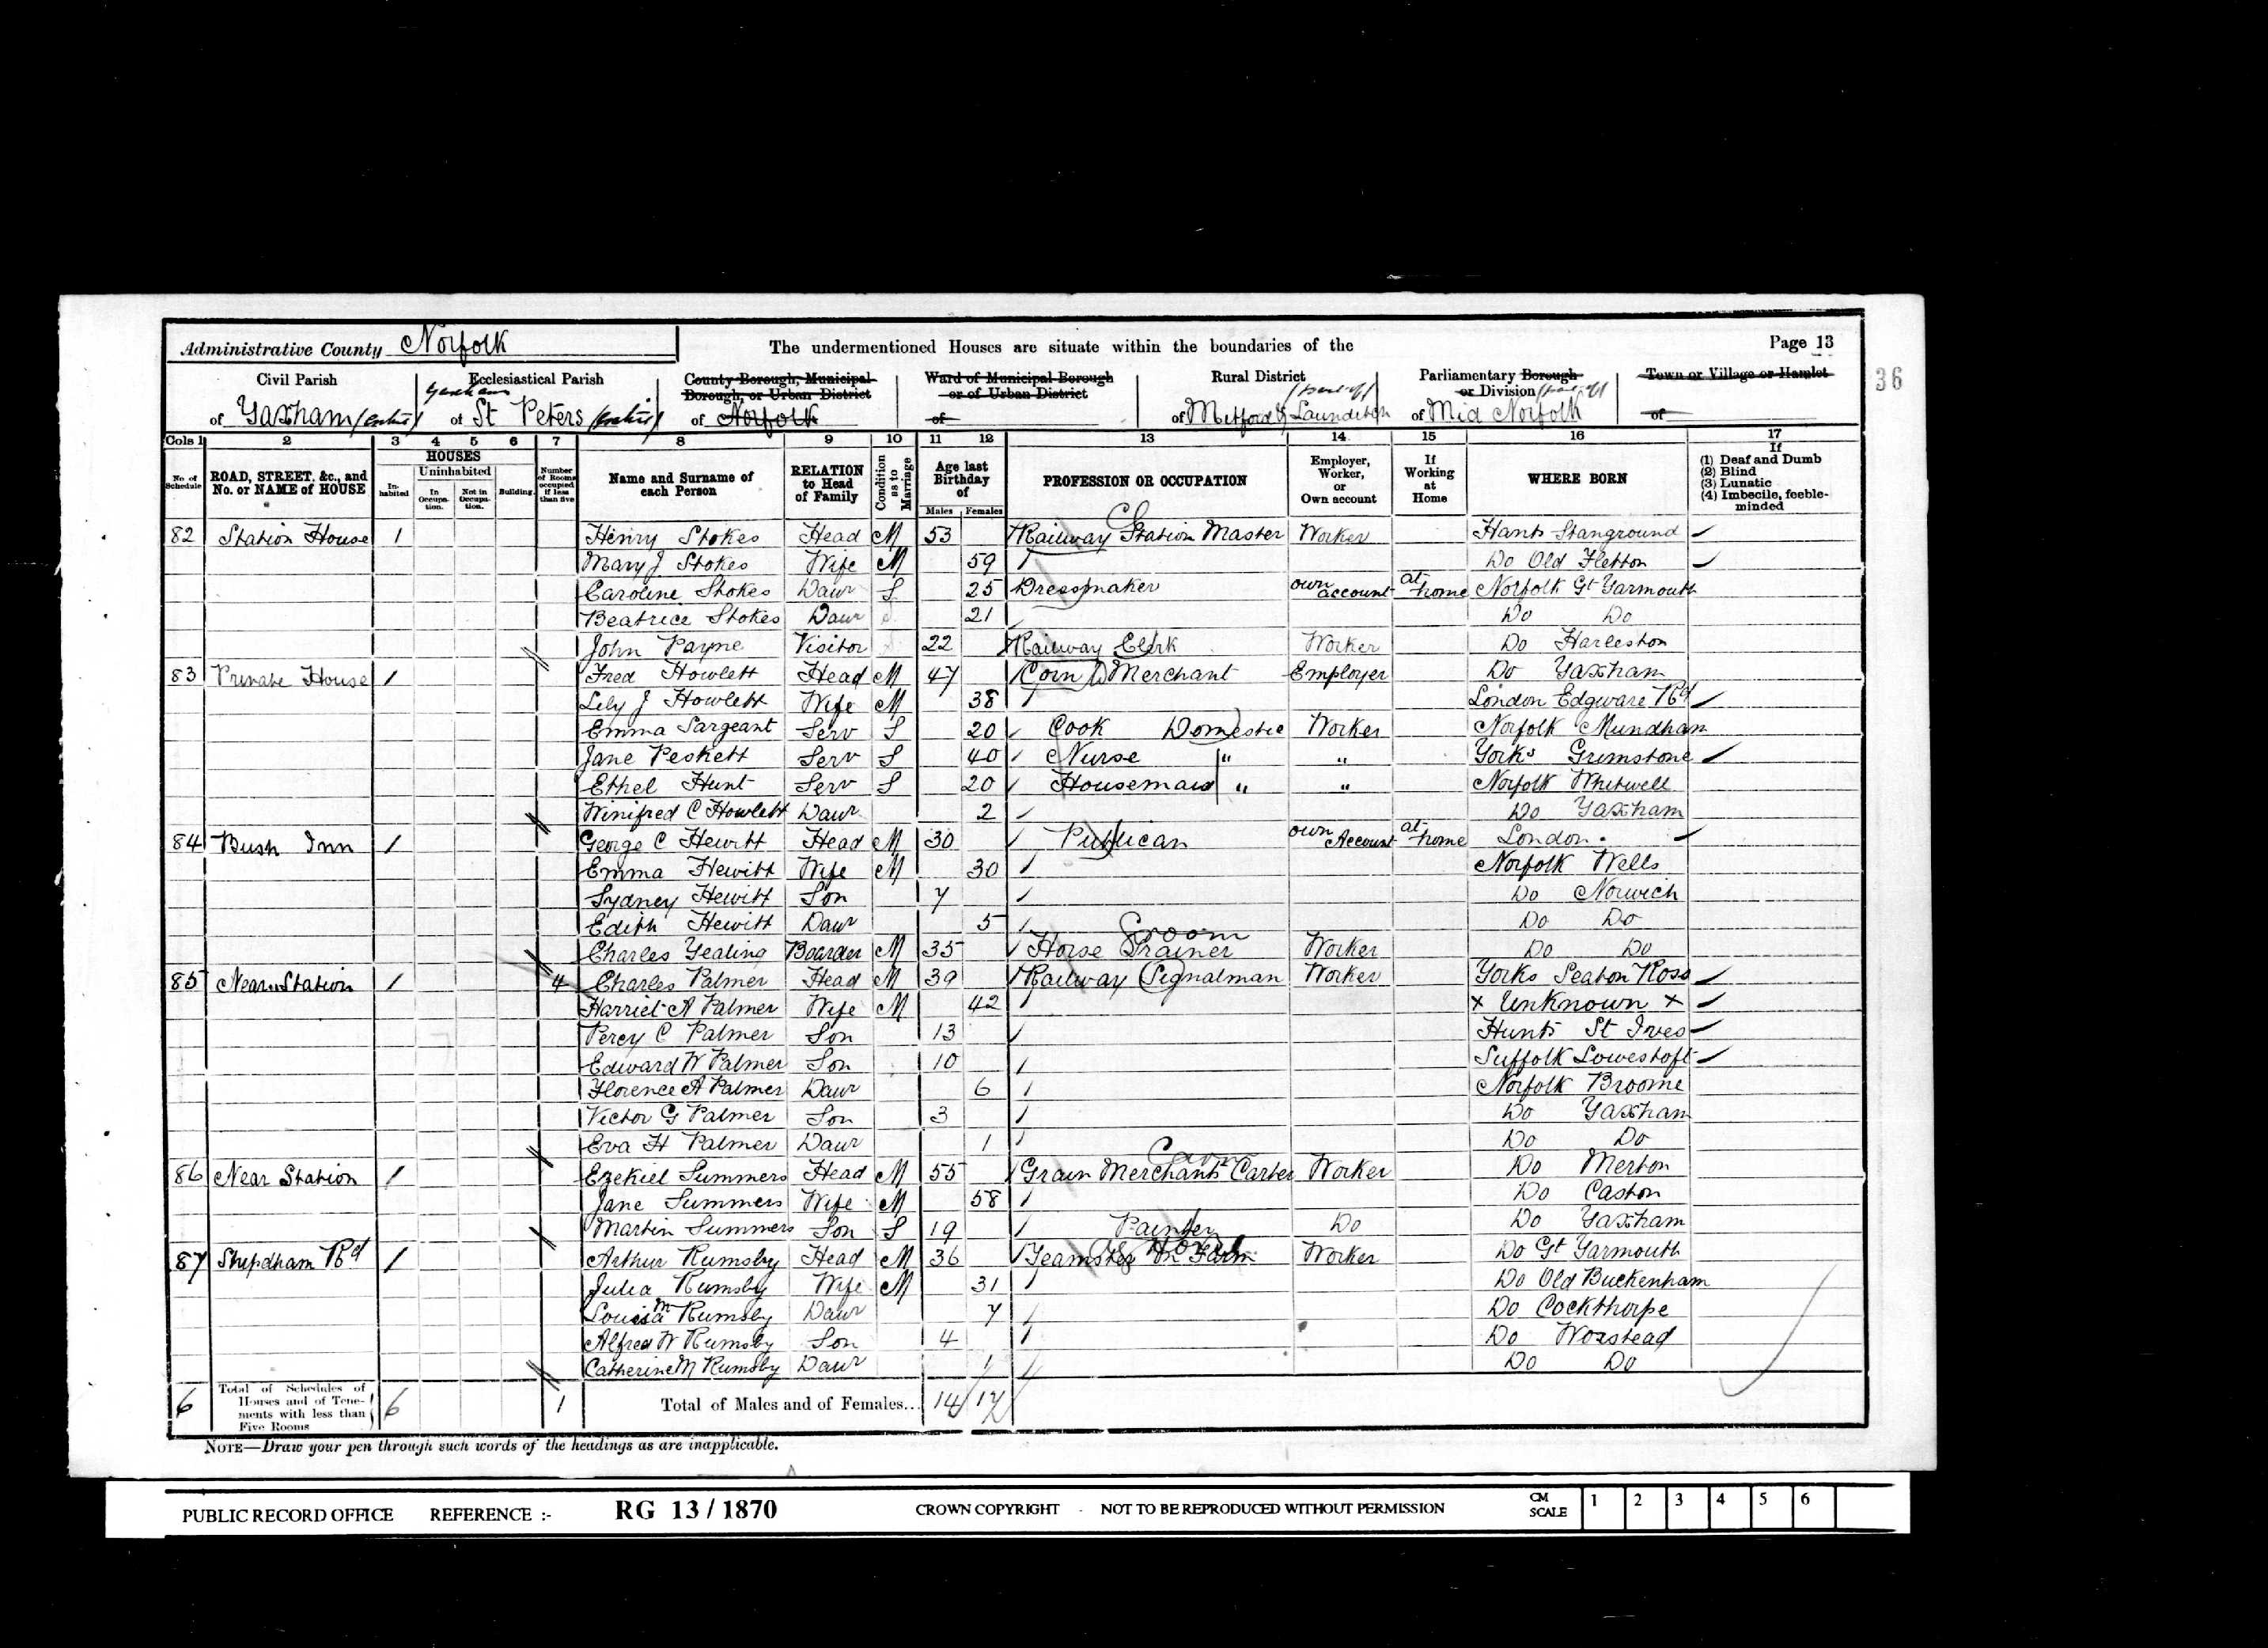 Administrative County Norfolk
The undermentioned Houses are situate within the boundaries of the
Page 13
36
Civil Parish
of Yaxham (Entire)
Ecclesiastical Parish
Yaxham
of St Peters (Entire)
County Borough, Municipal Borough, or Urban District
of Norfolk
Ward of Municipal Borough or of Urban District
of
Rural District
(part of)
of Mitford & Launditch
Parliamentary Borough or Division (part of)
of Mid Norfolk
Town or Village or Hamlet
of
Cols 1 2 3 4 5 6 7 8 9 10 11 12 13 14 15 16 17
No of Schedule
ROAD, STREET, &c., and No. or NAME of HOUSE
HOUSES
In-habited
Uninhabited
In Occupa-tion.
Not in Occupa-tion.
Building.
Number of Rooms occupied if less than five
Name and Surname of each Person
RELATION to Head of Family
Condition as to Marriage
Age last Birthday of
Males Females
PROFESSION OR OCCUPATION
Employer, Worker, or Own account
If Working at Home
WHERE BORN
If
(1) Deaf and Dumb
(2) Blind
(3) Lunatic
(4) Imbecile, feeble-minded
82 Station House 1 Henry Stokes Head M 53 Railway Station Master Worker Hants Stanground
Mary J Stokes Wife M 59 Do Old Fletton
Caroline Stokes Daur S 25 Dressmaker own account at home Norfolk Gt Yarmouth
Beatrice Stokes Daur 21 Do Do
John Payne Visitor 22 Railway Clerk Worker Do Harleston
83 Private House 1 Fred Howlett Head M 47 Corn Merchant Employer Do Yaxham
Lily J Howlett Wife M 38 London Edgware Rd
Emma Sargeant Serv S 20 Cook Domestic Worker Norfolk Mundham
Jane Peskett Serv S 40 Nurse " " Yorks Grimstone
Ethel Hunt Serv S 20 Housemaid " " Norfolk Whitwell
Winifred C Howlett Daur 2 Do Yaxham
84 Bush Inn 1 George C Hewitt Head M 30 Publican own Account at home London
Emma Hewitt Wife M 30 Norfolk Wells
Sydney Hewitt Son 7 Do Norwich
Edith Hewitt Daur 5 Do Do
Groom
Charles Yealing Boarder M 35 Horse Trainer Worker Do Do
85 Near Station 1 4 Charles Palmer Head M 39 Railway Signalman Worker Yorks Seaton Ross
Harriet A Palmer Wife M 42 x Unknown x
Percy C Palmer Son 13 Hunts St Ives
Edward W Palmer Son 10 Suffolk Lowestoft
Florence A Palmer Daur 6 Norfolk Broome
Victor G Palmer Son 3 Do Yaxham
Eva H Palmer Daur 1 Do Do
86 Near Station 1 Ezekiel Summers Head M 55 Grain Merchants Carter Worker Do Merton
Jane Summers Wife M 58 Do Caston
Martin Summers Son S 19 Painter Do Do Yaxham
87 Shipdham Rd 1 Arthur Rumsby Head M 36 Teamster On Farm Worker Do Gt Yarmouth
Julia Rumsby Wife M 31 Do Old Buckenham
Louisa M Rumsby Daur 7 Do Cockthorpe
Alfred W Rumsby Son 4 Do Worstead
Catherine M Rumsby Daur 1 Do Do
6 Total of Schedules of Houses and of Tene-ments with less than Five Rooms 6 1 Total of Males and of Females... 14 17
NOTE—Draw your pen through such words of the headings as are inapplicable.
PUBLIC RECORD OFFICE REFERENCE :- RG 13 / 1870 CROWN COPYRIGHT - NOT TO BE REPRODUCED WITHOUT PERMISSION CM SCALE 1 2 3 4 5 6